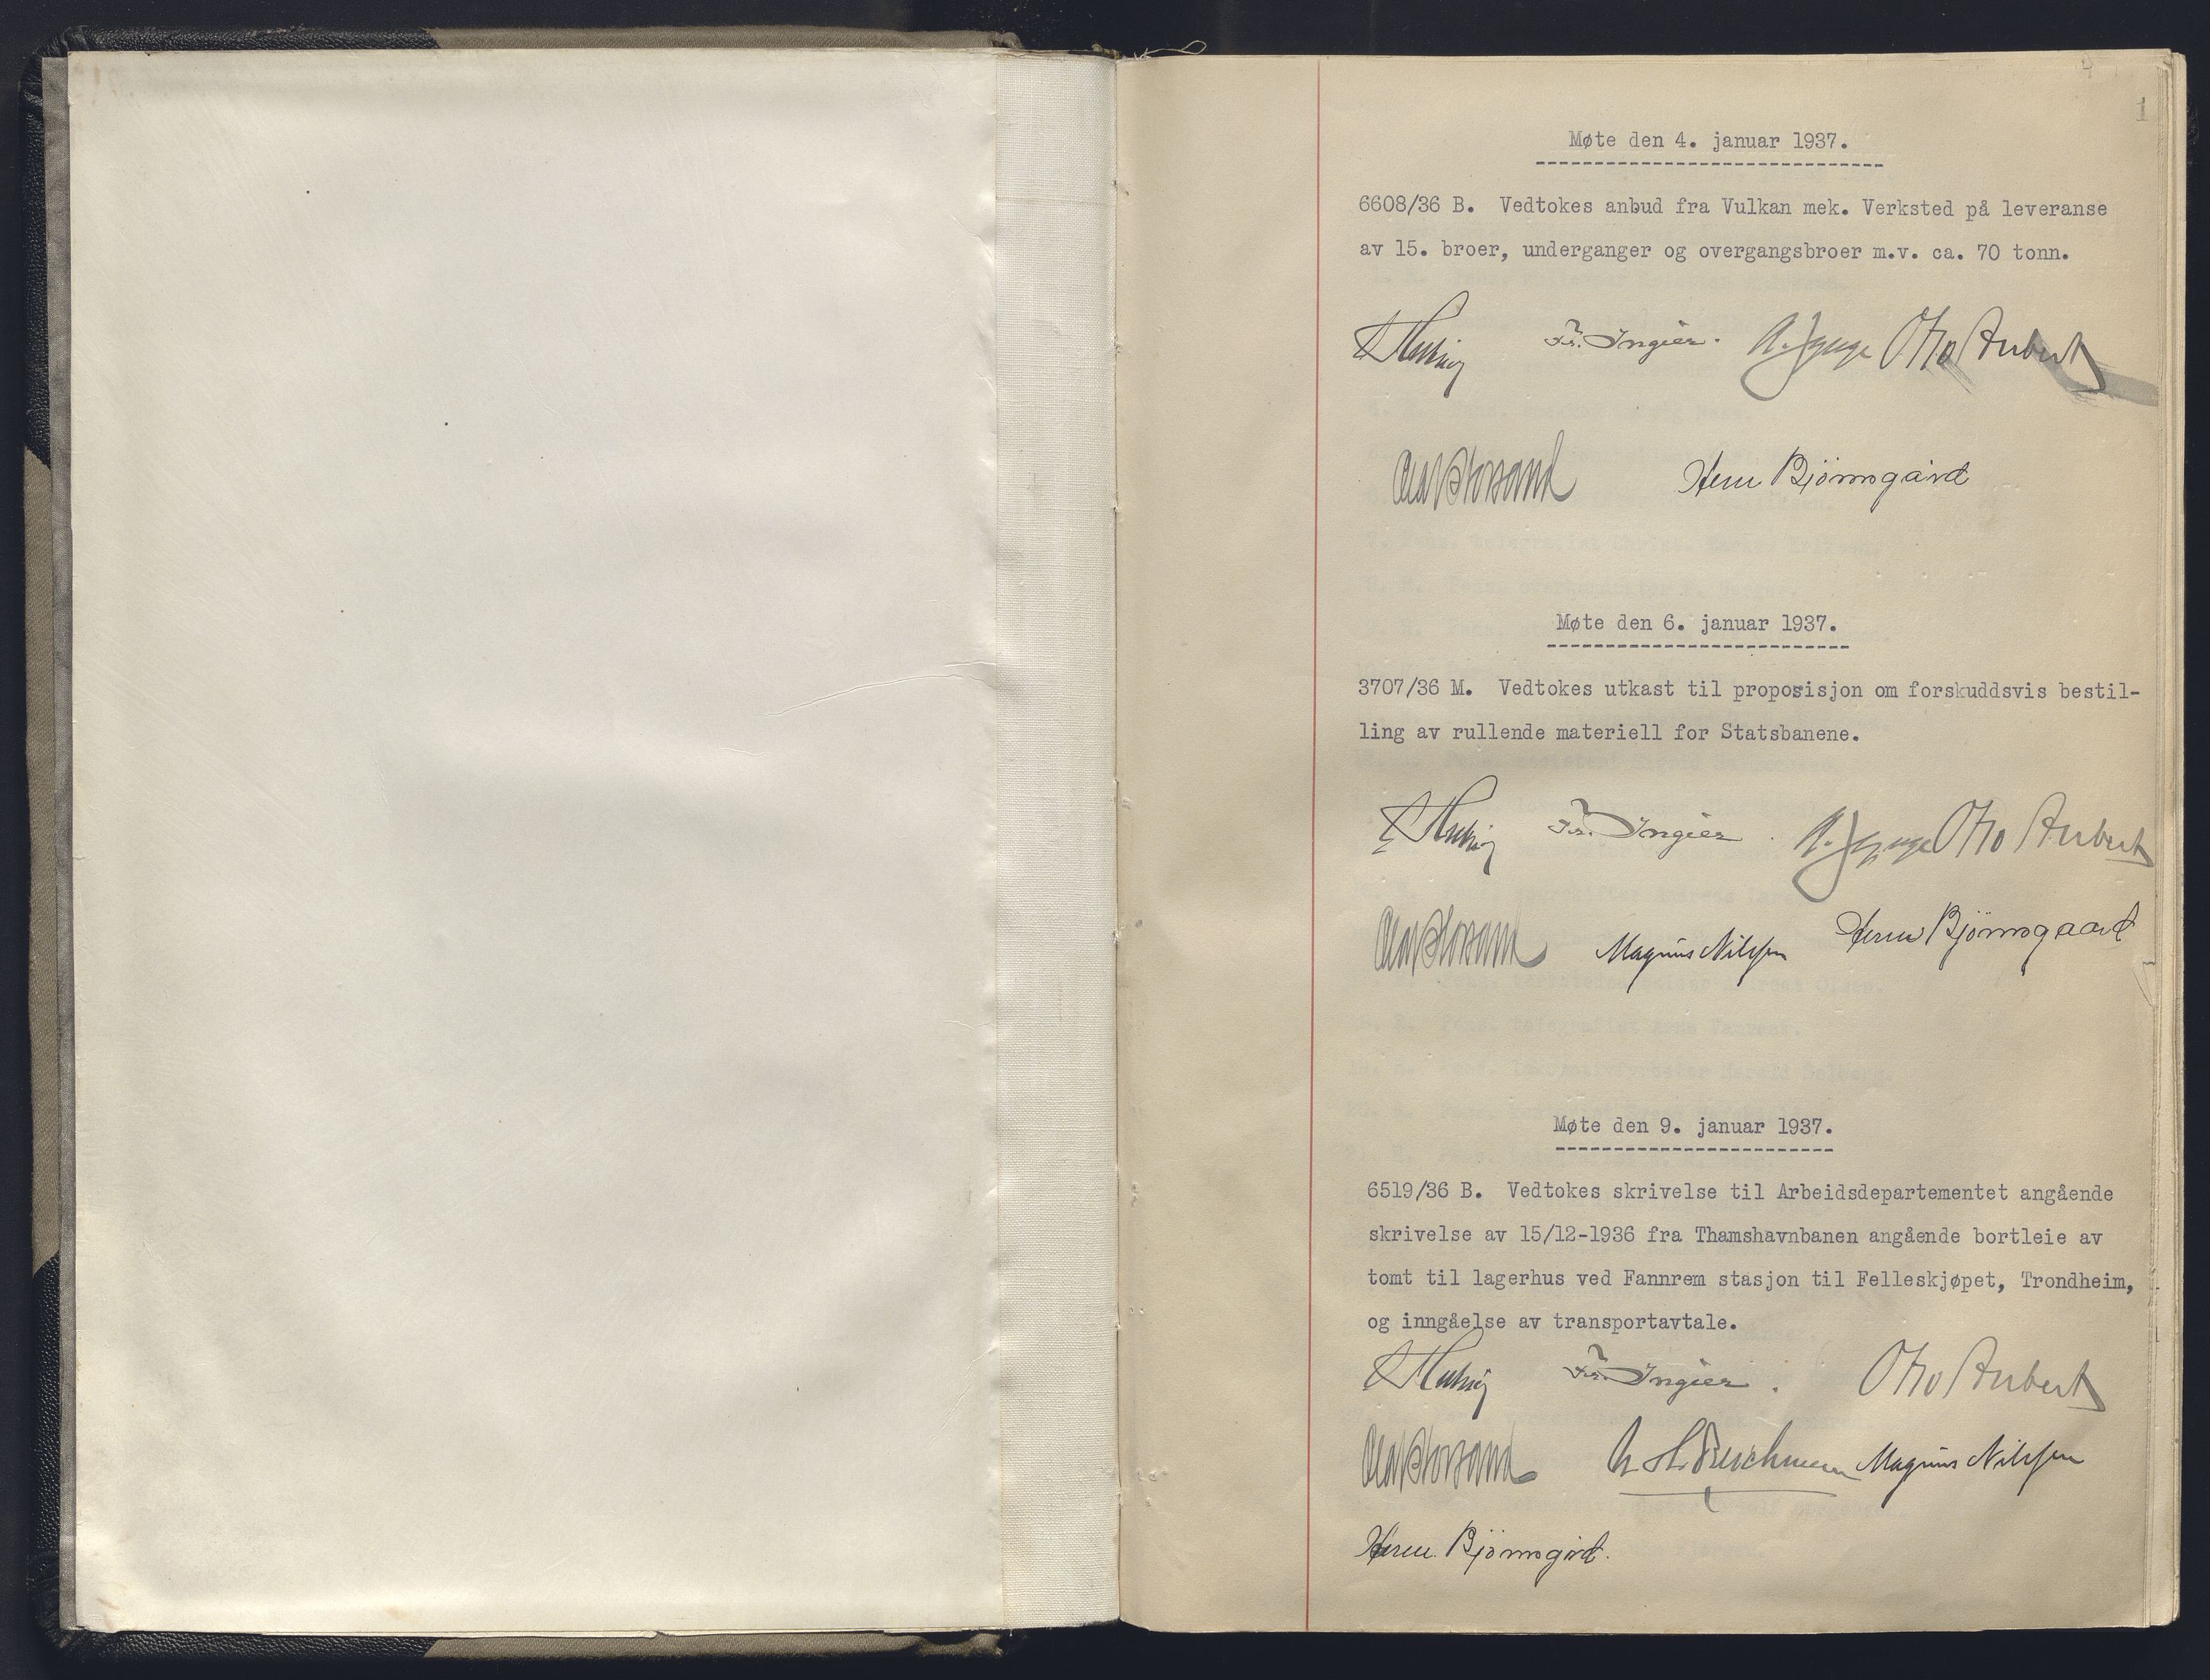 1
Møte den 4. januar 1937.
6608/36 B. Vedtokes anbud fra Vulkan mek. Verksted på leveranse
av 15. broer, underganger og overgangsbroer m.v. ca. 70 tonn.
Fr. Ingier. Otto Aubert
Herm Bjørnsgård
Møte den 6. januar 1937.
3707/36 M. Vedtokes utkast til proposisjon om forskuddsvis bestil-
ling av rullende materiell for Statsbanene.
Fr. Ingier. Otto Aubert
Magnus Nilssen Herm Bjørnsgaard
Møte den 9. januar 1937.
6519/36 B. Vedtokes skrivelse til Arbeidsdepartementet angående
skrivelse av 15/12-1936 fra Thamshavnbanen angående bortleie av
tomt til lagerhus ved Fannrem stasjon til Felleskjøpet, Trondheim,
og inngåelse av transportavtale.
Fr. Ingier. Otto Aubert
Magnus Nilssen
Herm. Bjørnsgård.